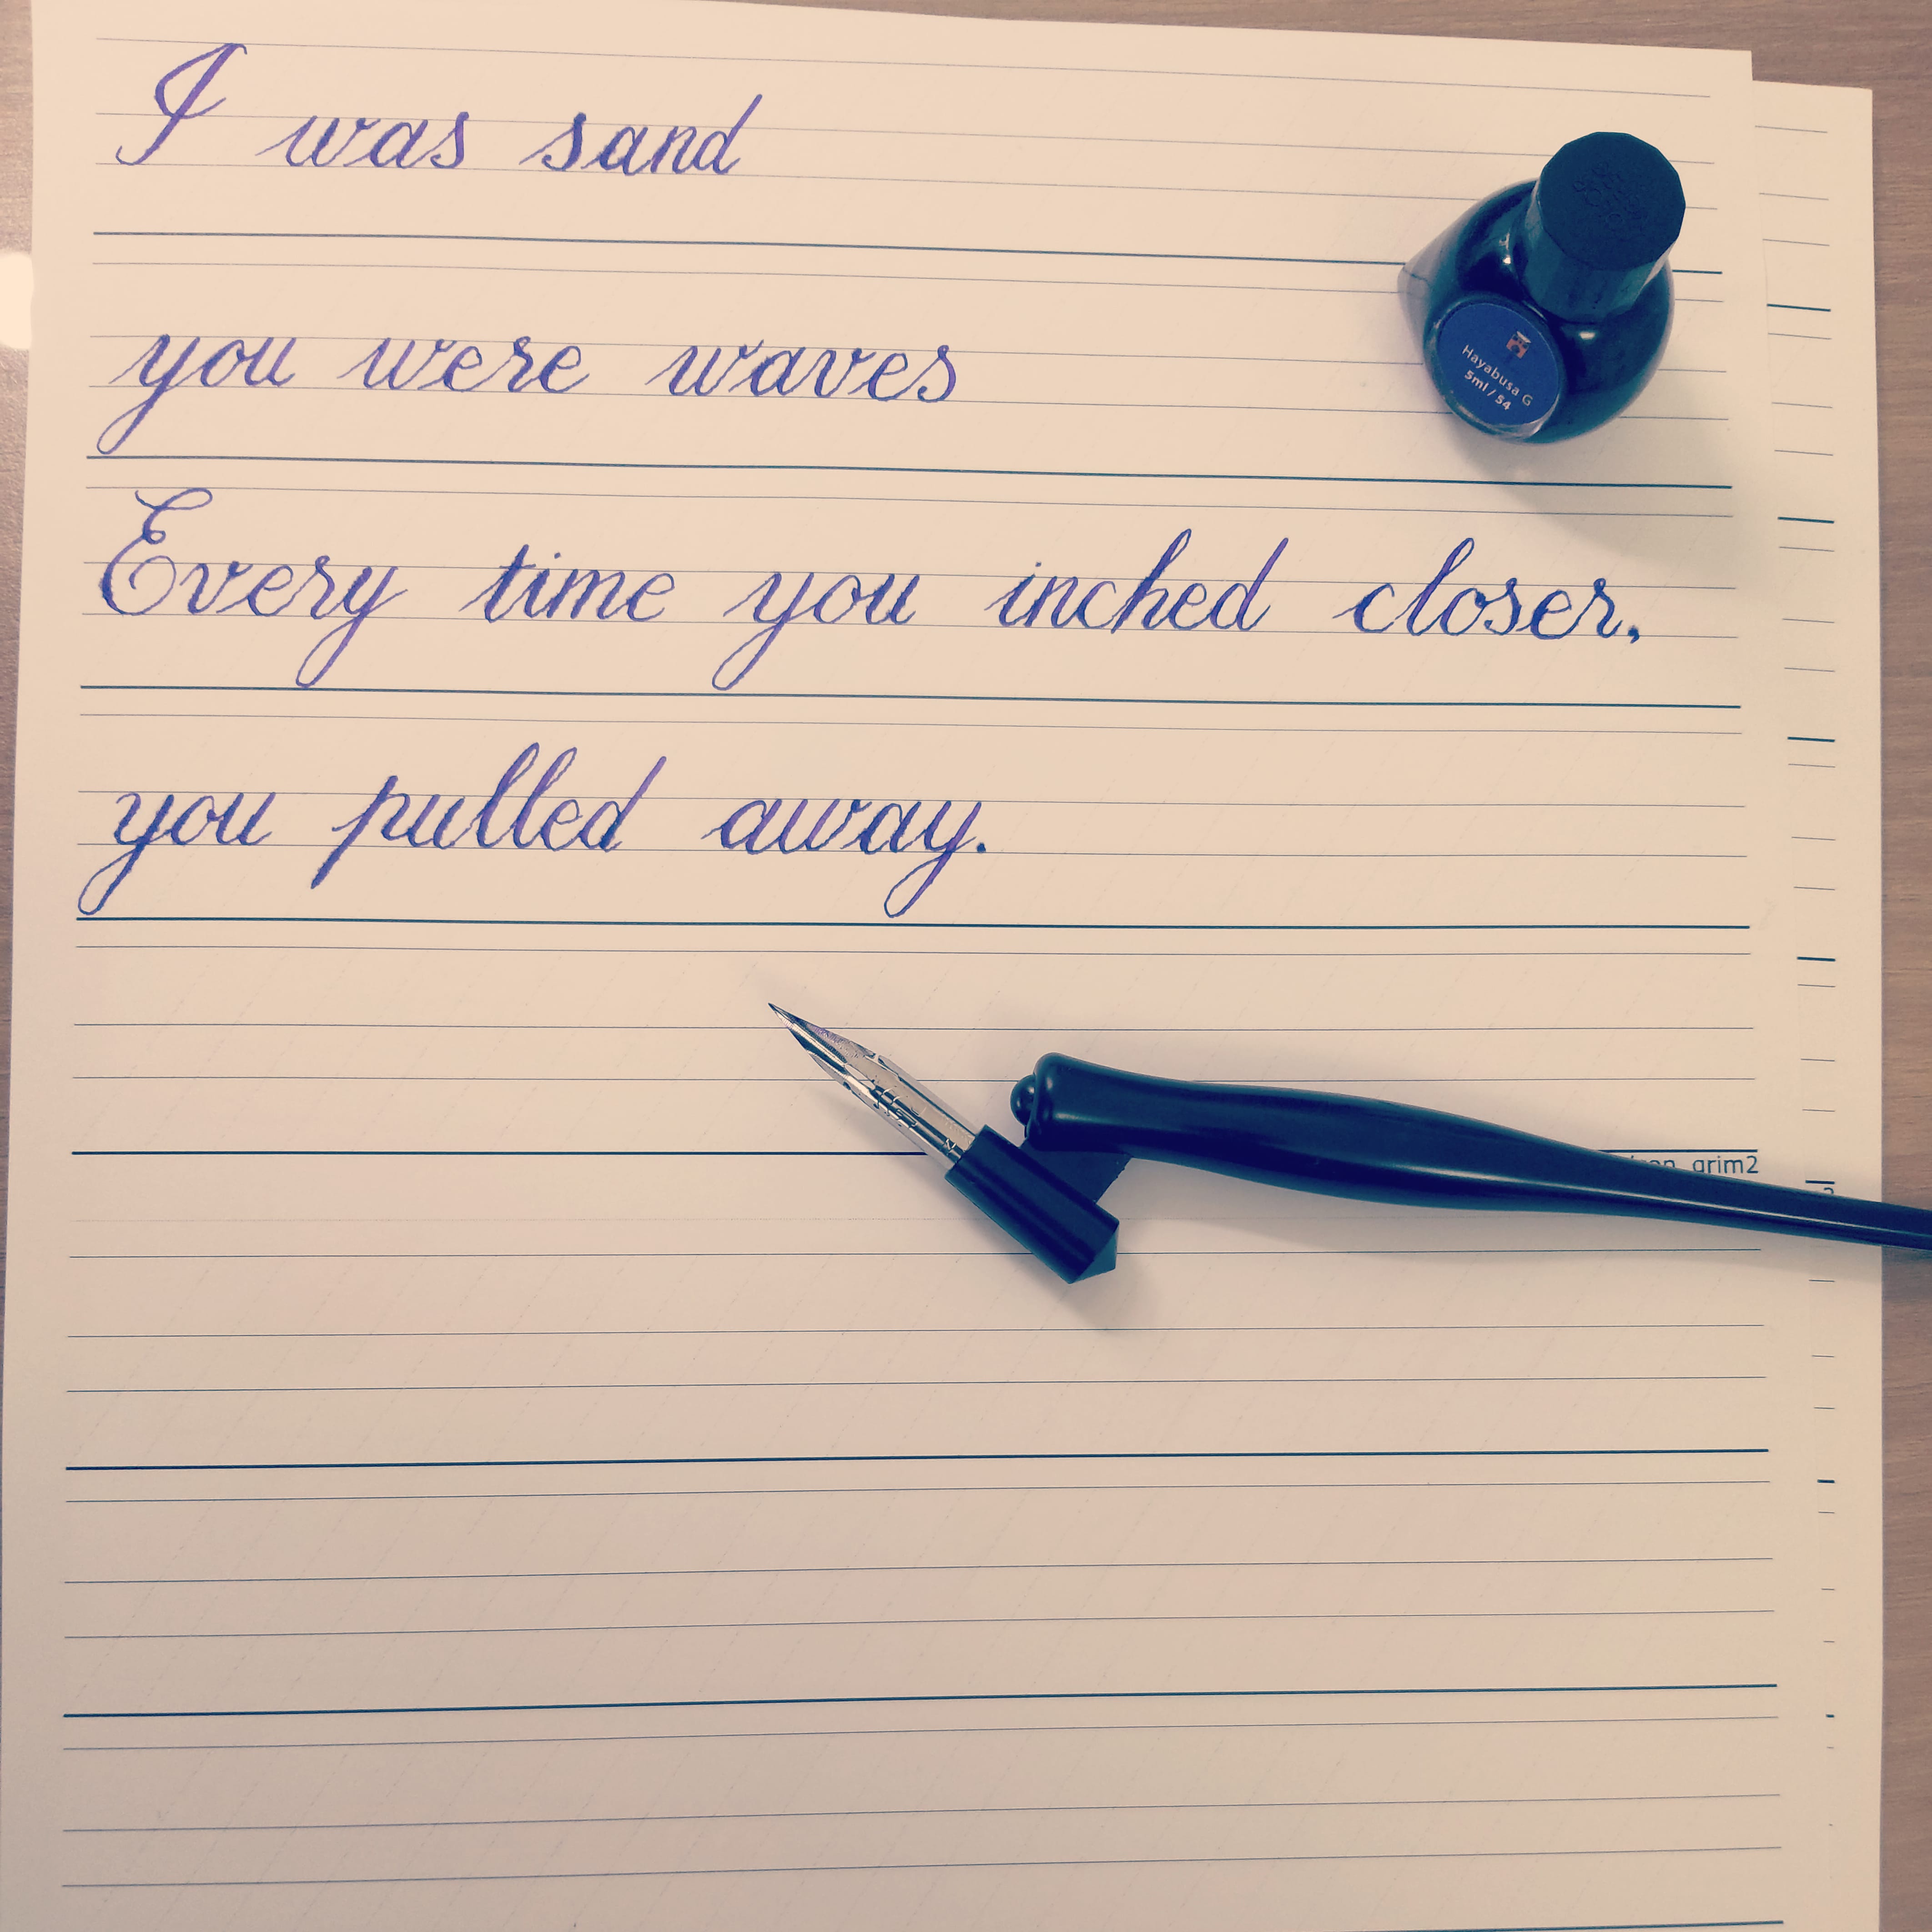 I was sand
you were waves
Hayabusa G
5ml / 54
Every time you inched closer,
you pulled away.
grim2